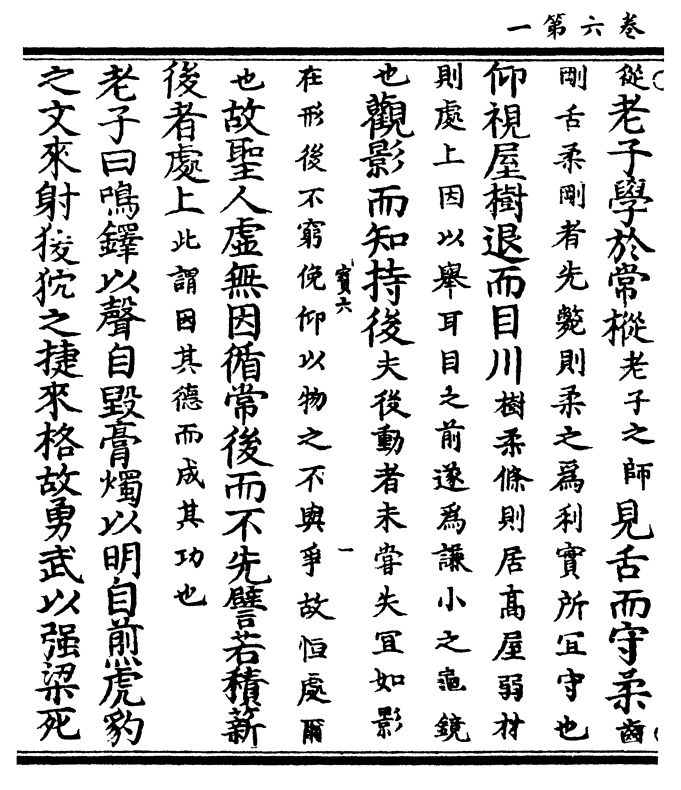 卷六第一
從老子學於常樅老子之師見舌而守柔齒
剛舌柔剛者先斃則柔之爲利實所冝守也
仰視屋樹退而目川樹柔條則居高屋弱材
則處上因以舉耳目之前遂爲謙小之龜鏡
也觀影而知持後夫後動者未甞失冝如影
寳六 一
在形後不窮俛仰以物之不與爭故恒處爾
也故聖人虛無因循常後而不先譬若積薪
後者處上此謂因其德而成其功也
老子曰鳴鐸以聲自毀膏燭以明自煎虎豹
之文來射猨狖之捷來格故勇武以强梁死